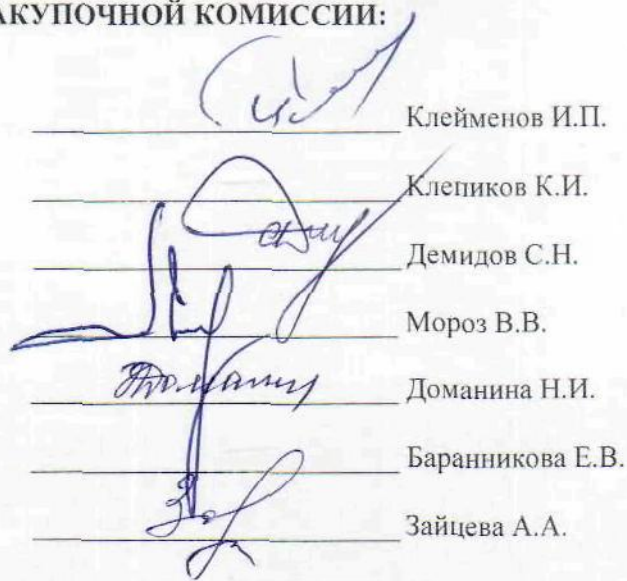 АКУПОЧНОЙ КОМИССИИ:
Клейменов И.П.
Клепиков К.И.
Демидов С.Н.
Мороз В.В.
Доманина Н.И.
Баранникова Е.В.
Зайцева А.А.